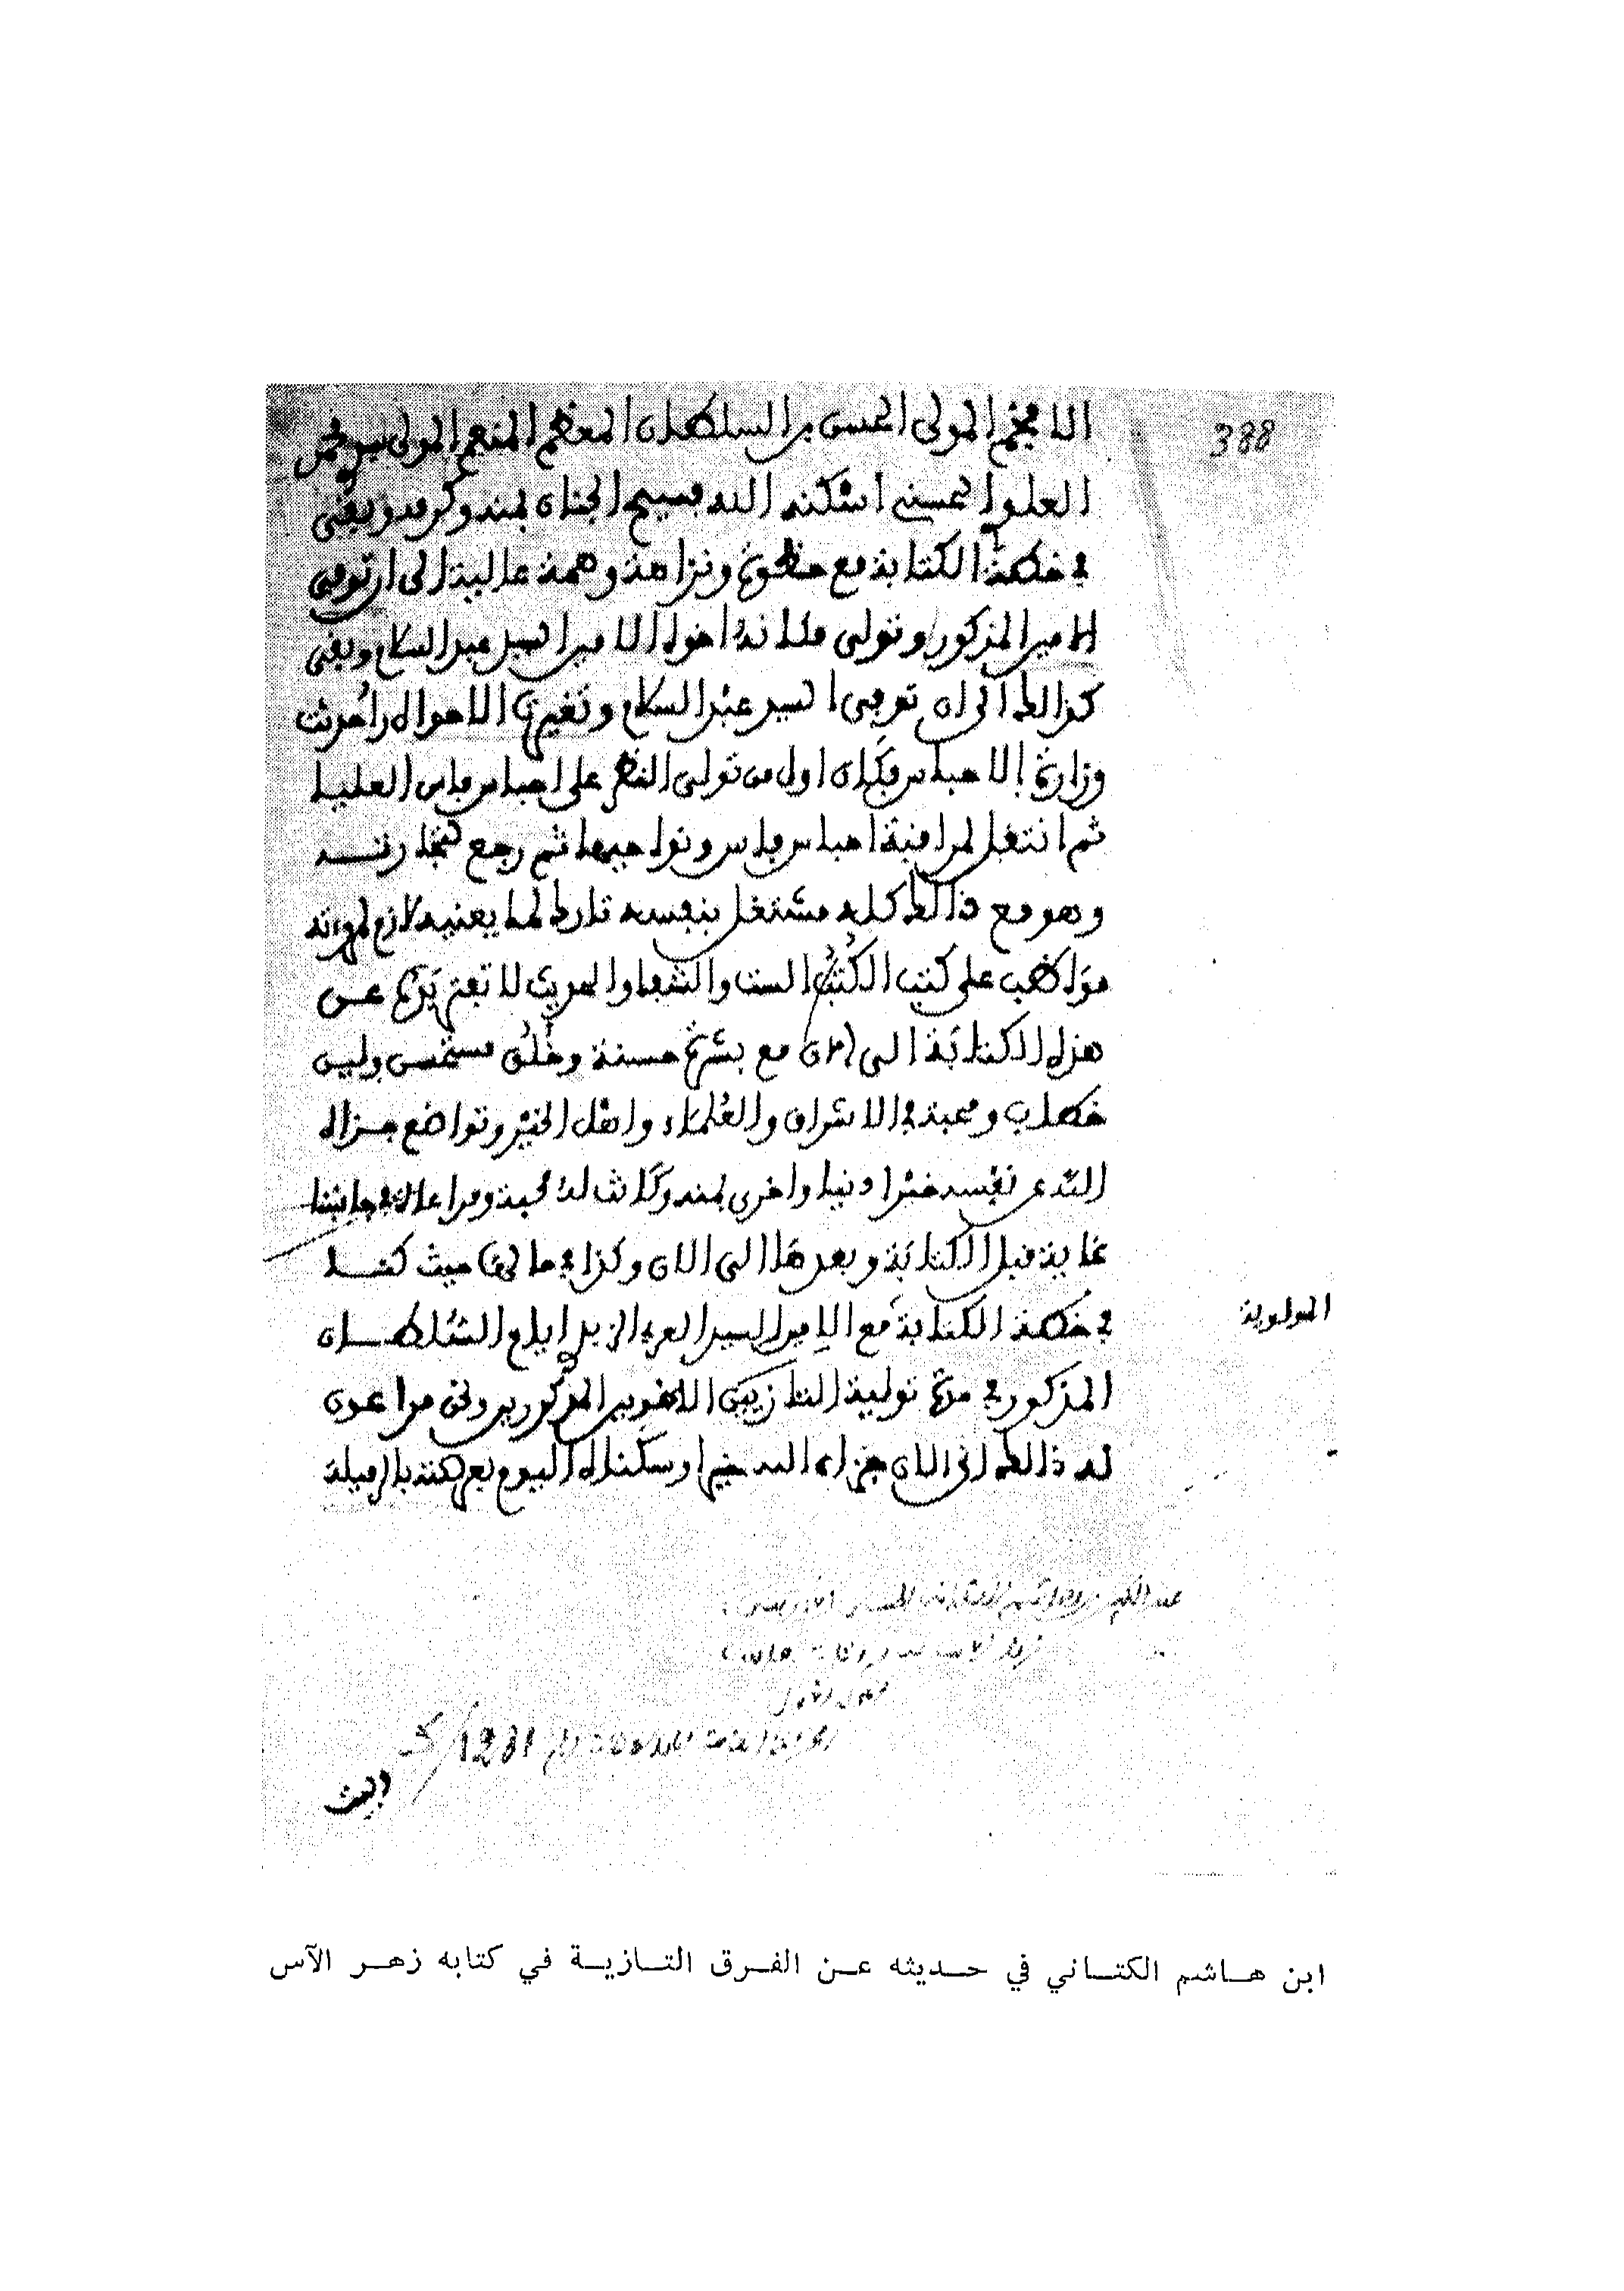 388
الافخم المولى الحسن بن السلطان المعظم المنعم المولى سيدي محمد
العلوي الحسني اسكنه الله فسيح الجنان بمنه وكرمه وبقى
في خطة الكتابة مع حظوة ونزاهة وهمة عالية الى ان توفي
الامير المذكور وتولى مكانه اخوه الامير السيد عبد السلام وبقى
كذالك الى ان توفى السيد عبد السلام وتغيرت الاحوال واحدثت
وزارة الاحباس فكان اول من تولى النظر على احباس فاس العليا
ثم انتقل لمراقبة احباس فاس ونواحيها ثم رجع
وهو مع ذالك كله مشتغل بنفسه تارك لما يعنيه لازم
مواظب على كتب الكتب الست والشفا والحديث لا تفتر يده عـن
هذه الكتابة الى الان مع بشرة حسنة وخلق مستحسن ولين
خطاب ومحبة في الاشراف والعلماء واهل الخير وتواضع جـزاه
الله عن نفسه خيرا دنيا واخرى بمنه وكانت له محبة ومراعاة في جانبنا
غاية قبل الكتابة وبعدها الى الان وكذا في حالة حيث كنـا
في خطة الكتابة مع الامير السيد العربي ايام السلطـان
المولوية
المذكور في مدة تولية التازيين الاخوين المذكورين ونحن مراعون
له ذالك الى الان جزاه الله خيرا وسكناه اليوم بعرصته بالرميلة
1281
ابن هـاشم الكتـاني في حـديثه عـن الفـرق التـازيـة في كتابه زهـر الآس